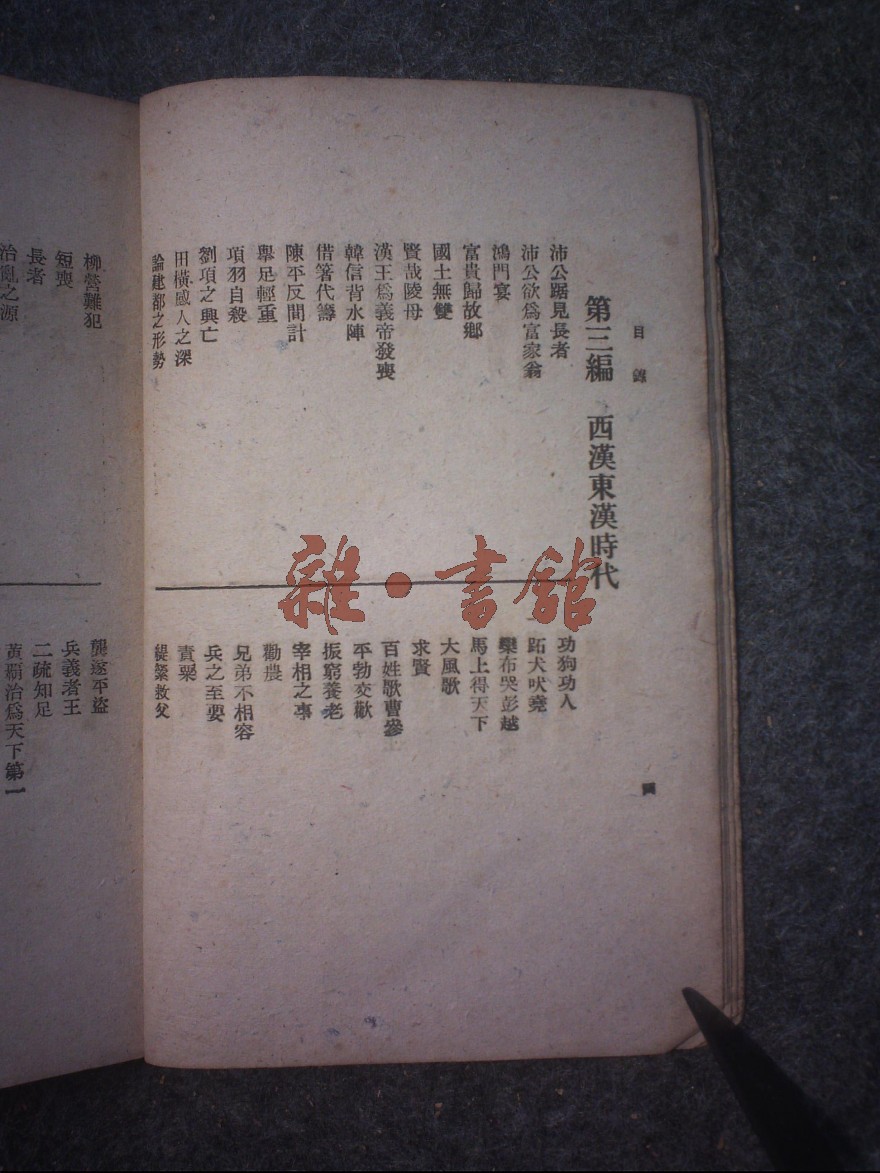 目錄
第三編　西漢東漢時代
沛公踞見長者
沛公欲爲富家翁
鴻門宴
富貴歸故鄉
國士無雙
賢哉陵母
漢王爲義帝發喪
韓信背水陣
借箸代籌
陳平反間計
舉足輕重
項羽自殺
劉項之興亡
田橫感人之深
論建都之形勢
功狗功人
跖犬吠堯
欒布哭彭越
馬上得天下
大風歌
求賢
百姓歌曹參
平勃交歡
振窮養老
宰相之事
勸農
兄弟不相容
兵之至要
貴粟
緹縈救父
四
柳營難犯
短喪
長者
治亂之源
龔遂平盜
兵義者王
二疏知足
黃霸治爲天下第一
雜·書館